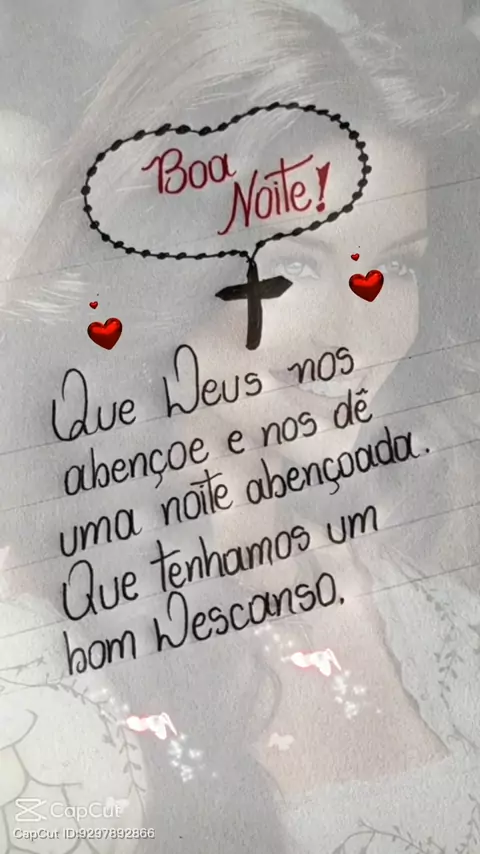 Boa
Noite!
Que Deus nos
abençoe e nos dê
uma noite abençoada.
Que tenhamos um
bom Descanso.
CapCut
CapCut ID:9297892866